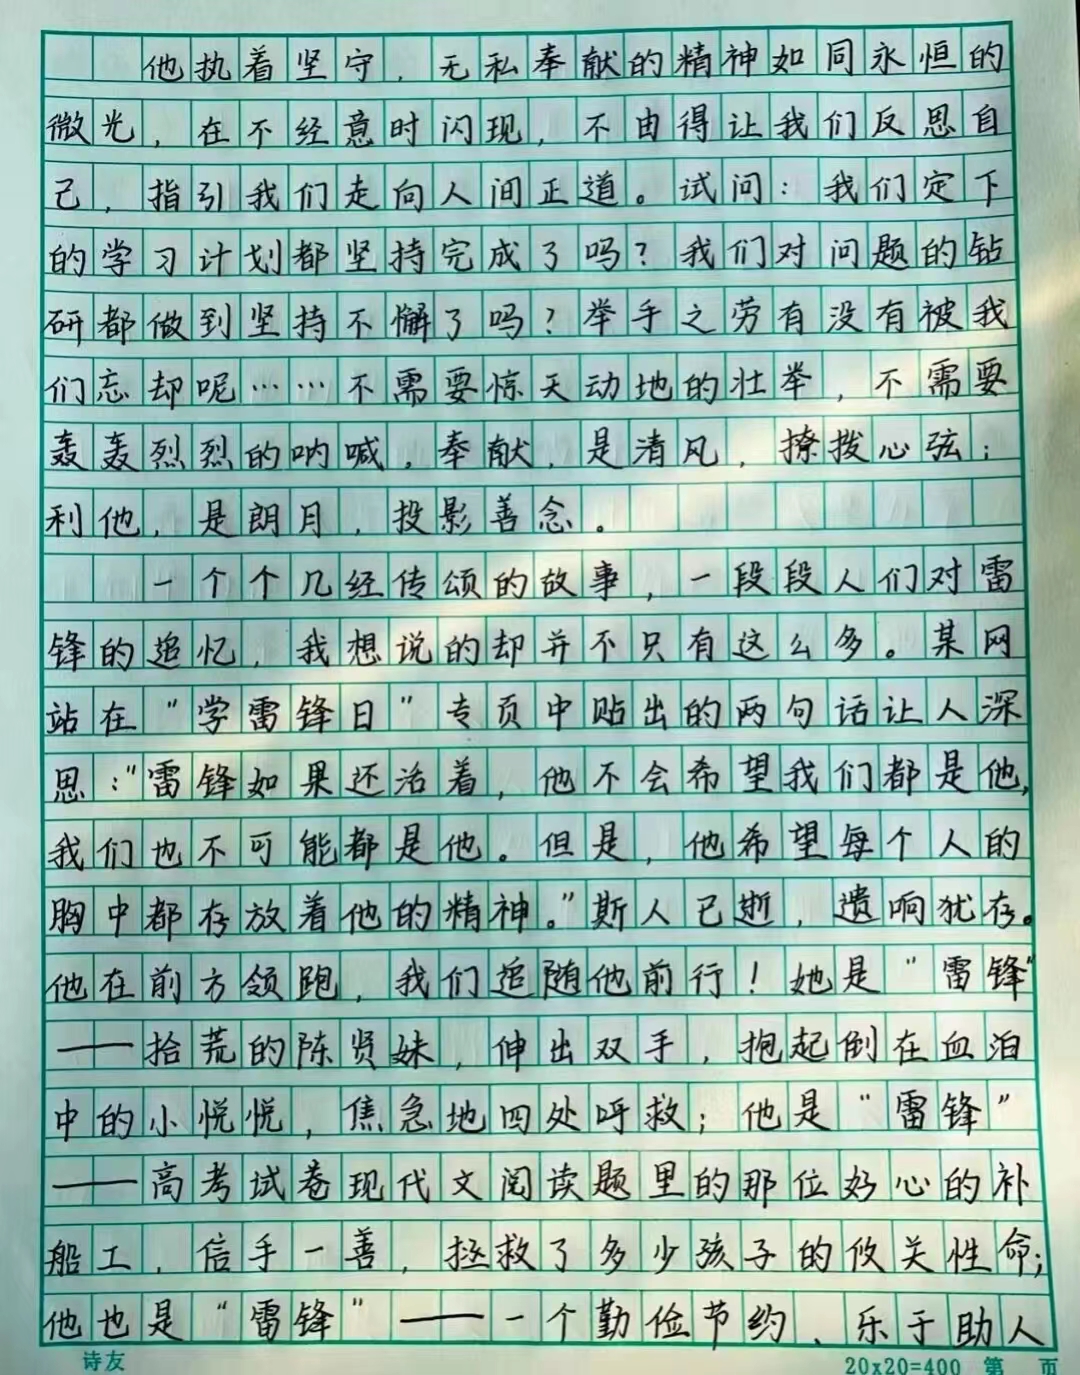 他执着坚守，无私奉献的精神如同永恒的
微光，在不经意时闪现，不由得让我们反思自
己，指引我们走向人间正道。试问：我们定下
的学习计划都坚持完成了吗？我们对问题的钻
研都做到坚持不懈了吗？举手之劳有没有被我
们忘却呢……不需要惊天动地的壮举，不需要
轰轰烈烈的呐喊。奉献，是清风，撩拨心弦；
利他，是朗月，投影善念。
一个个几经传颂的故事，一段段人们对雷
锋的追忆，我想说的却并不只有这么多。某网
站在“学雷锋日”专页中贴出的两句话让人深
思：“雷锋如果还活着，他不会希望我们都是他，
我们也不可能都是他。但是，他希望每个人的
胸中都存放着他的精神。”斯人已逝，遗响犹存。
他在前方领跑，我们追随他前行！她是“雷锋”
——拾荒的陈贤妹，伸出双手，抱起倒在血泊
中的小悦悦，焦急地四处呼救；他是“雷锋”
——高考试卷现代文阅读题里的那位好心的补
船工，信手一善，拯救了多少孩子的攸关性命；
他也是“雷锋”——一个勤俭节约、乐于助人
诗友
20x20=400 第 页